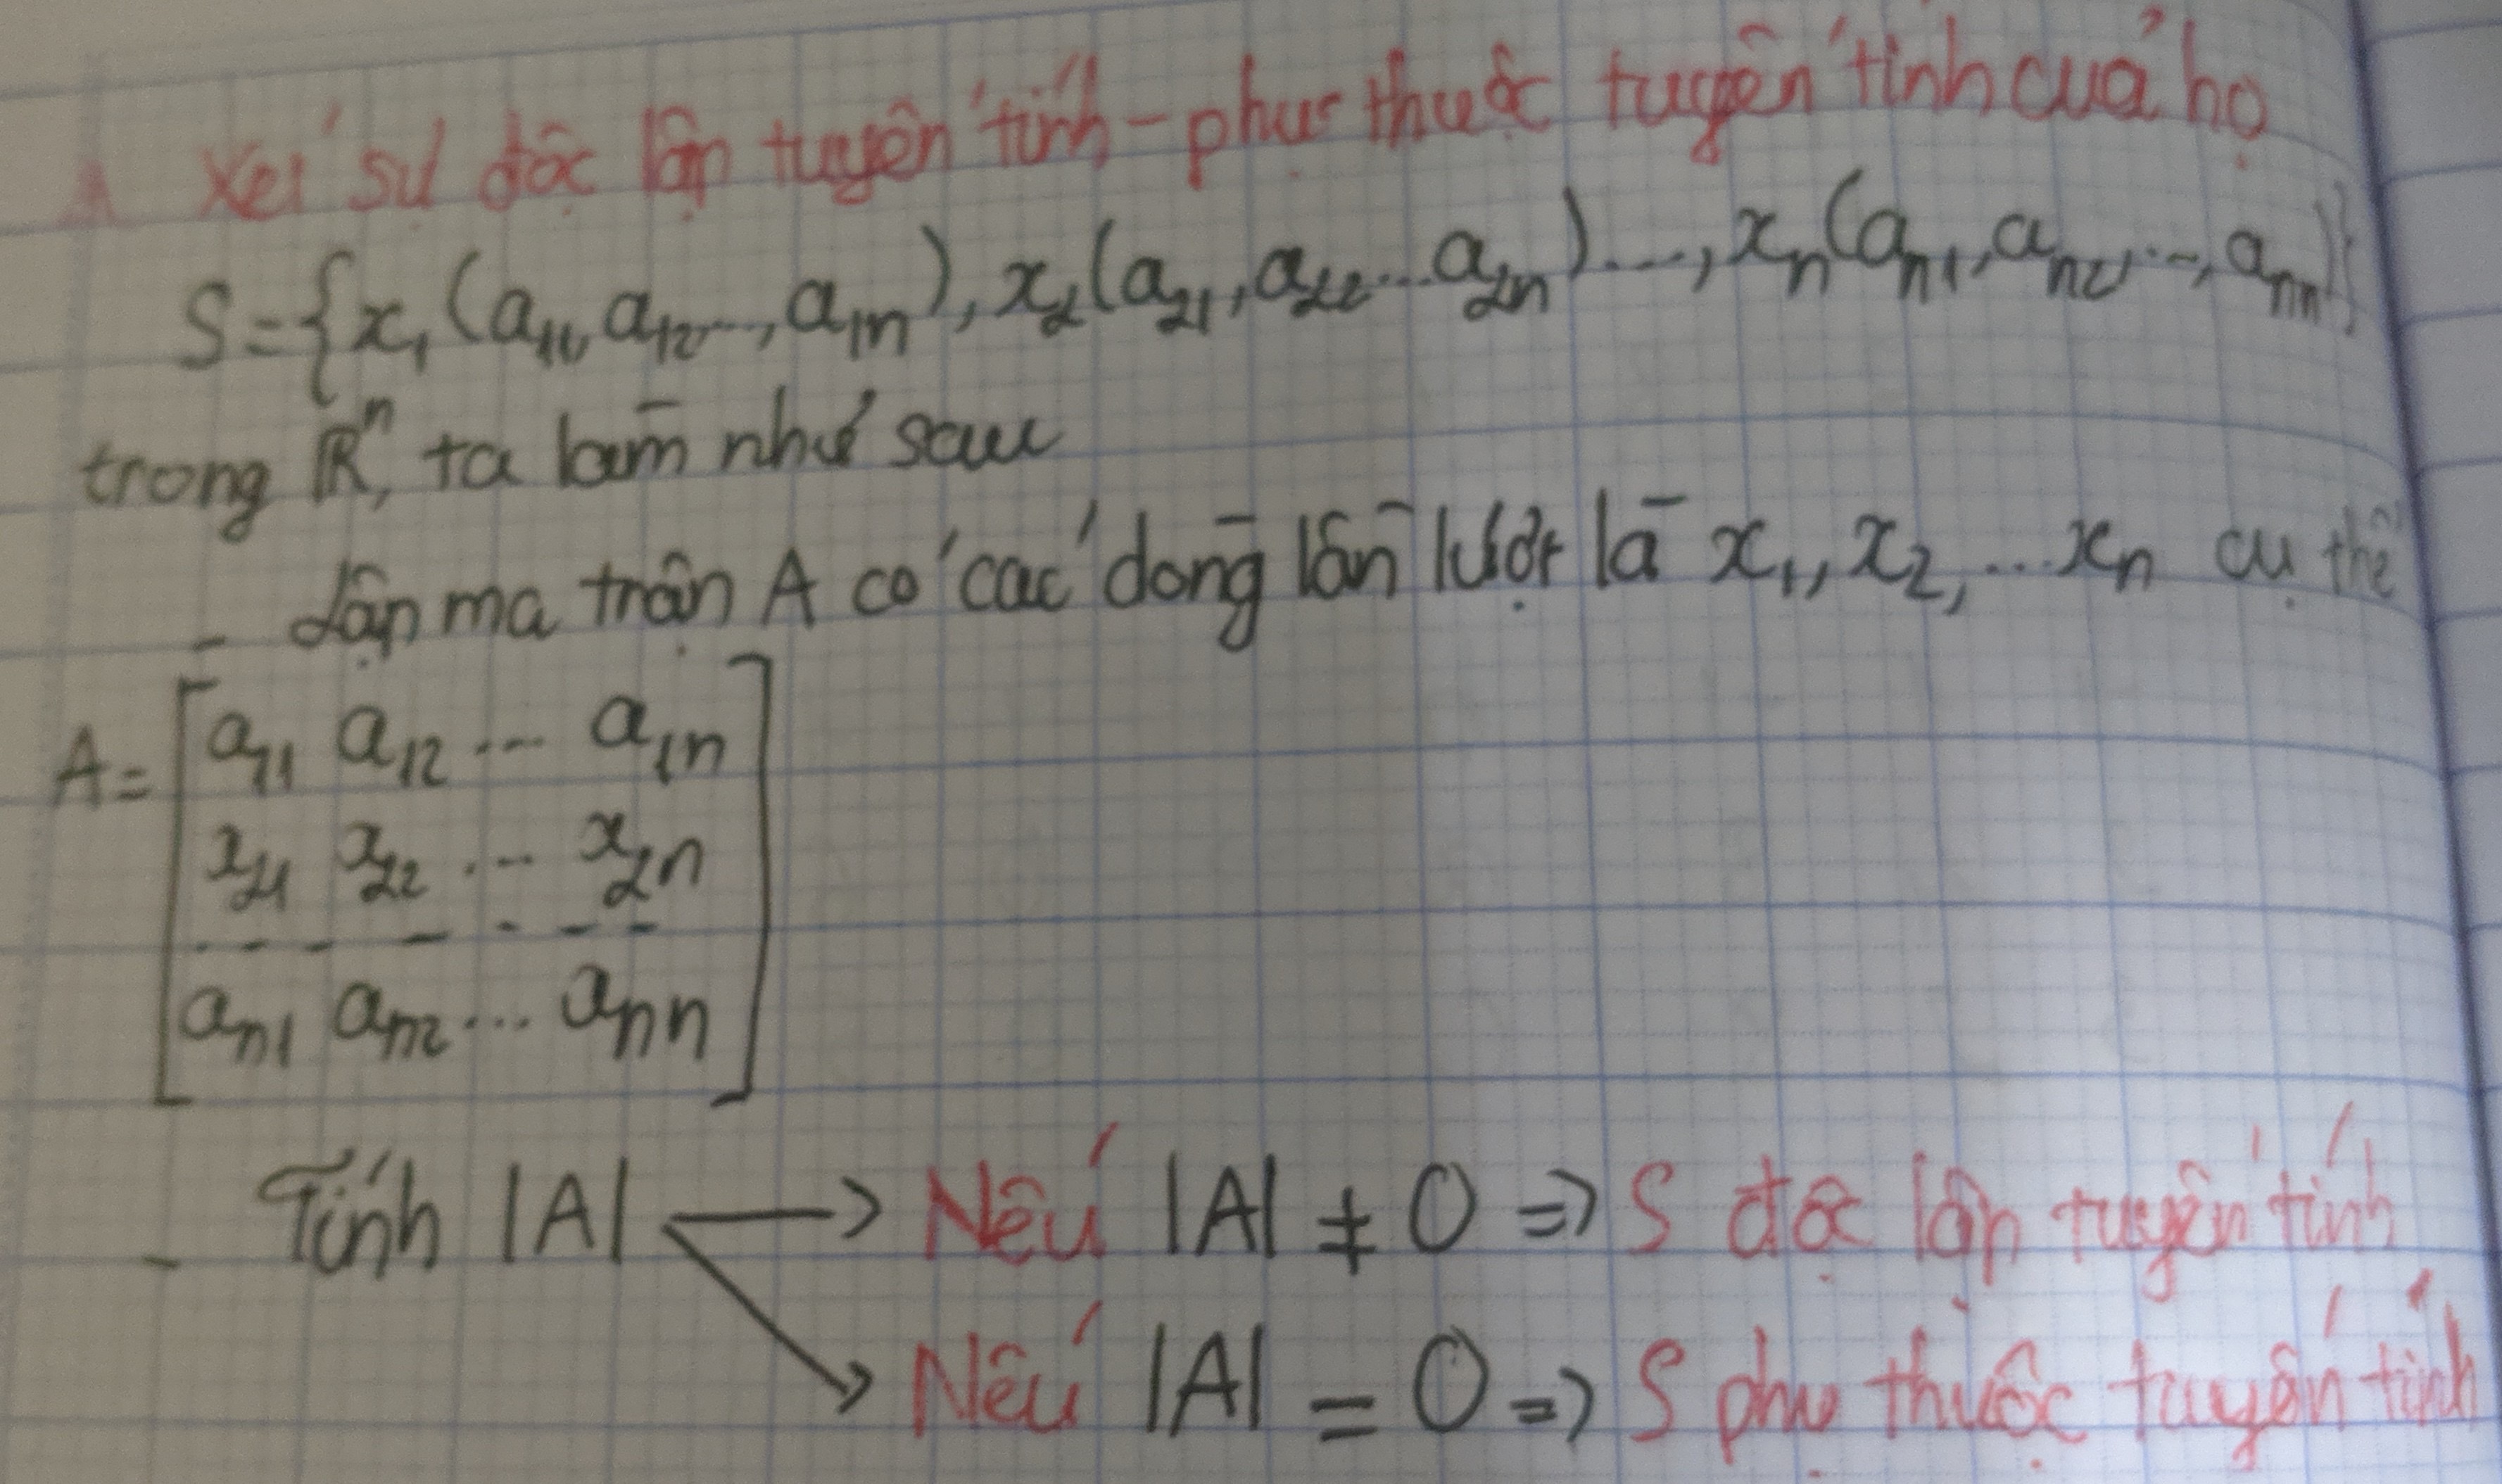 Xét sự độc lập tuyến tính - phụ thuộc tuyến tính của họ
S = {x₁(a₁₁, a₁₂..., a₁ₙ), x₂(a₂₁, a₂₂...a₂ₙ)..., xₙ(aₙ₁, aₙ₂, ..., aₙₙ)}
trong ℝⁿ, ta làm như sau
- Lập ma trận A có các dòng lần lượt là x₁, x₂, ...xₙ cụ thể
A = [a₁₁ a₁₂ ... a₁ₙ
x₂₁ x₂₂ ... x₂ₙ
- - - - - - -
aₙ₁ aₙ₂ ... aₙₙ]
- Tính |A| → Nếu |A| ≠ 0 => S độc lập tuyến tính
↘ Nếu |A| = 0 => S phụ thuộc tuyến tính